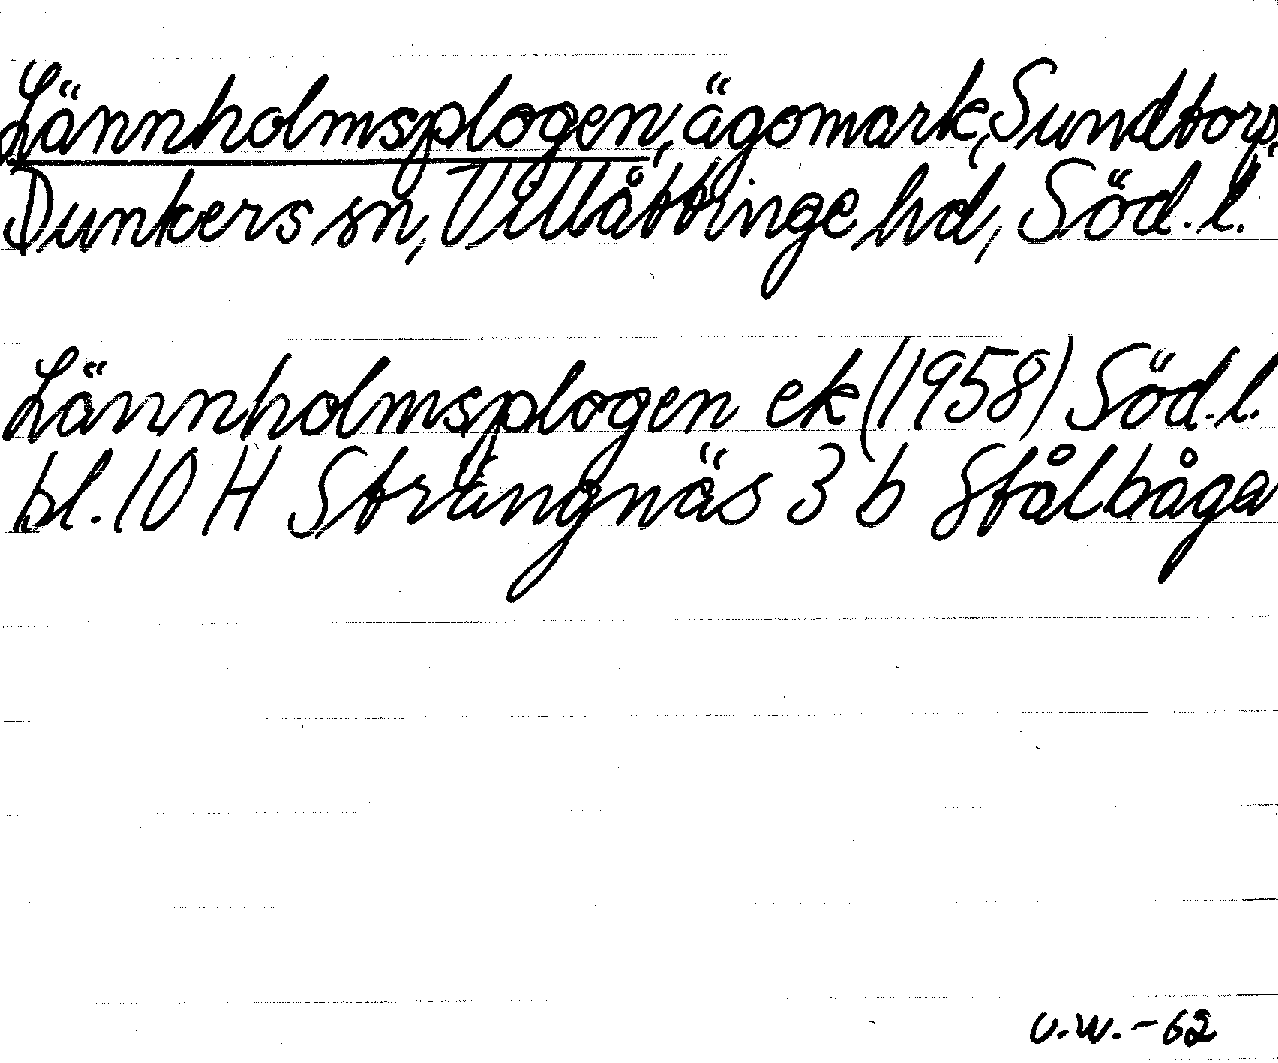 Lännholmsplogen, ägomark, Sundtorp,
Dunkers sn, Villåttinge hd, Söd. l.
Lännholmsplogen ek (1958) Söd. l.
bl. 10 H Strängnäs 3 b Stålbåga
U.W. - 62